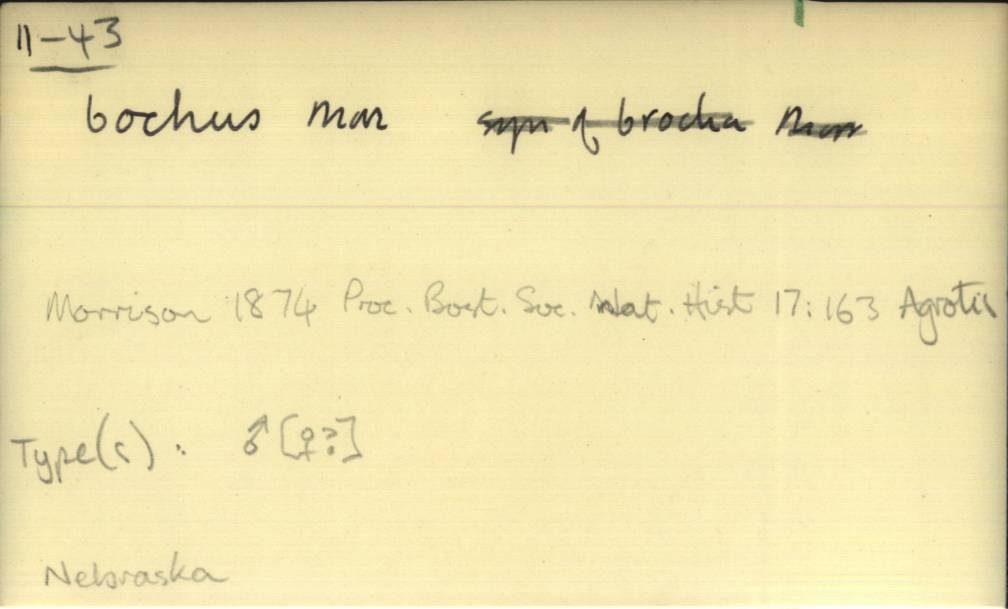 11-43
bochus Mor syn of brocha Morr
Morrison 1874 Proc. Bost. Soc. Nat. Hist 17:163 Agrotis
Type(s): ♂[♀?]
Nebraska